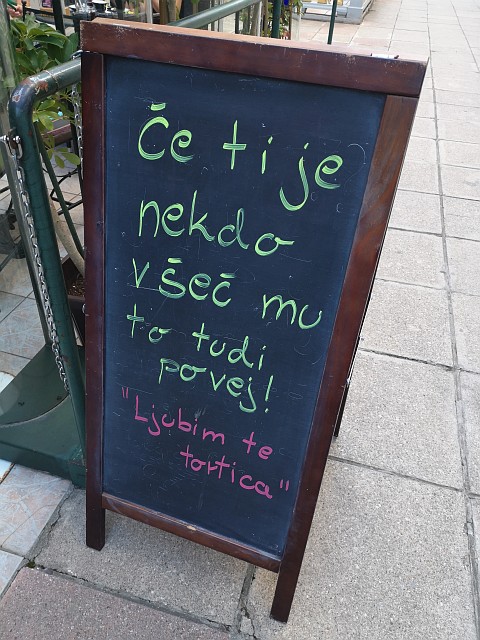 Če ti je
nekdo
všeč mu
to tudi
povej!
"Ljubim te
tortica"